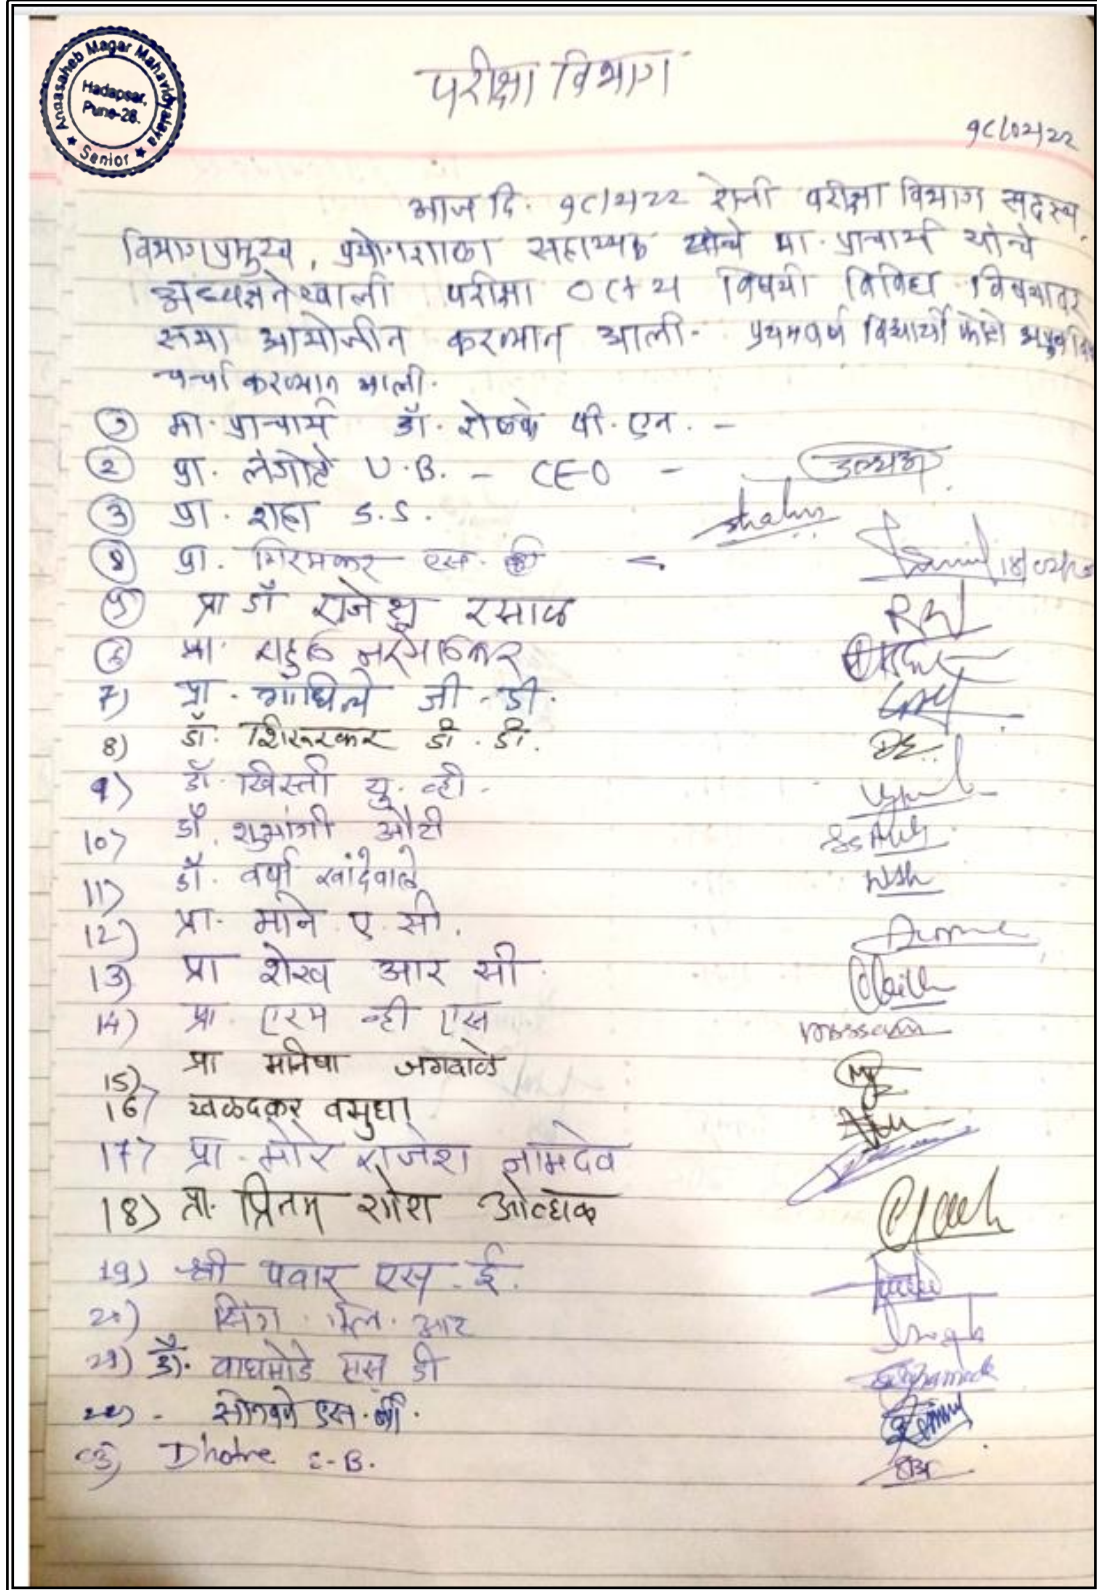 Annasaheb Magar Mahavidyalaya
Hadapsar,
Pune-28.
★ Senior ★
परीक्षा विभाग
१८/०२/२२
आज दि. १८/२/२२ रोजी परीक्षा विभाग सदस्य,
विभागप्रमुख, प्रयोगशाळा सहाय्यक यांचे मा. प्राचार्य यांचे
अध्यक्षतेखाली परीक्षा OCT 21 विषयी विविध विषयावर
सभा आयोजीत करण्यात आली. प्रथमवर्ष विद्यार्थी फोटो
चर्चा करण्यात आली.
① मा. प्राचार्य डॉ. शेळके पी. एन. -
② प्रा. लंगोटे U.B. - CEO -
③ प्रा. शहा S.S.
४ प्रा. गिरमकर एस. 18/02/22
५ प्रा डॉ राजेश्रु रसाळ
६ प्रा. राहुल
7) प्रा. गाधिले जी. डी.
8) डॉ. शिरूरकर डी. डी.
९) डॉ. खिस्ती यु. व्ही.
10) डॉ. शुभांगी औटी
11) डॉ. वर्षा खांदेवाले
12) प्रा. माने ए. सी.
13) प्रा शेख आर सी
14) प्रा. एरम व्ही एस
15) प्रा मनिषा जगदाळे
16) खळदकर वसुधा
17) प्रा. मोरे राजेश नामदेव
18) प्रा. प्रितम ओव्हाळ
19) श्री पवार एस. ई.
२०) सिंग एल. आर
२१) डॉ. वाघमोडे एस डी
२२) - सोनवणे एस. बी.
२३) Dhotre S.B.